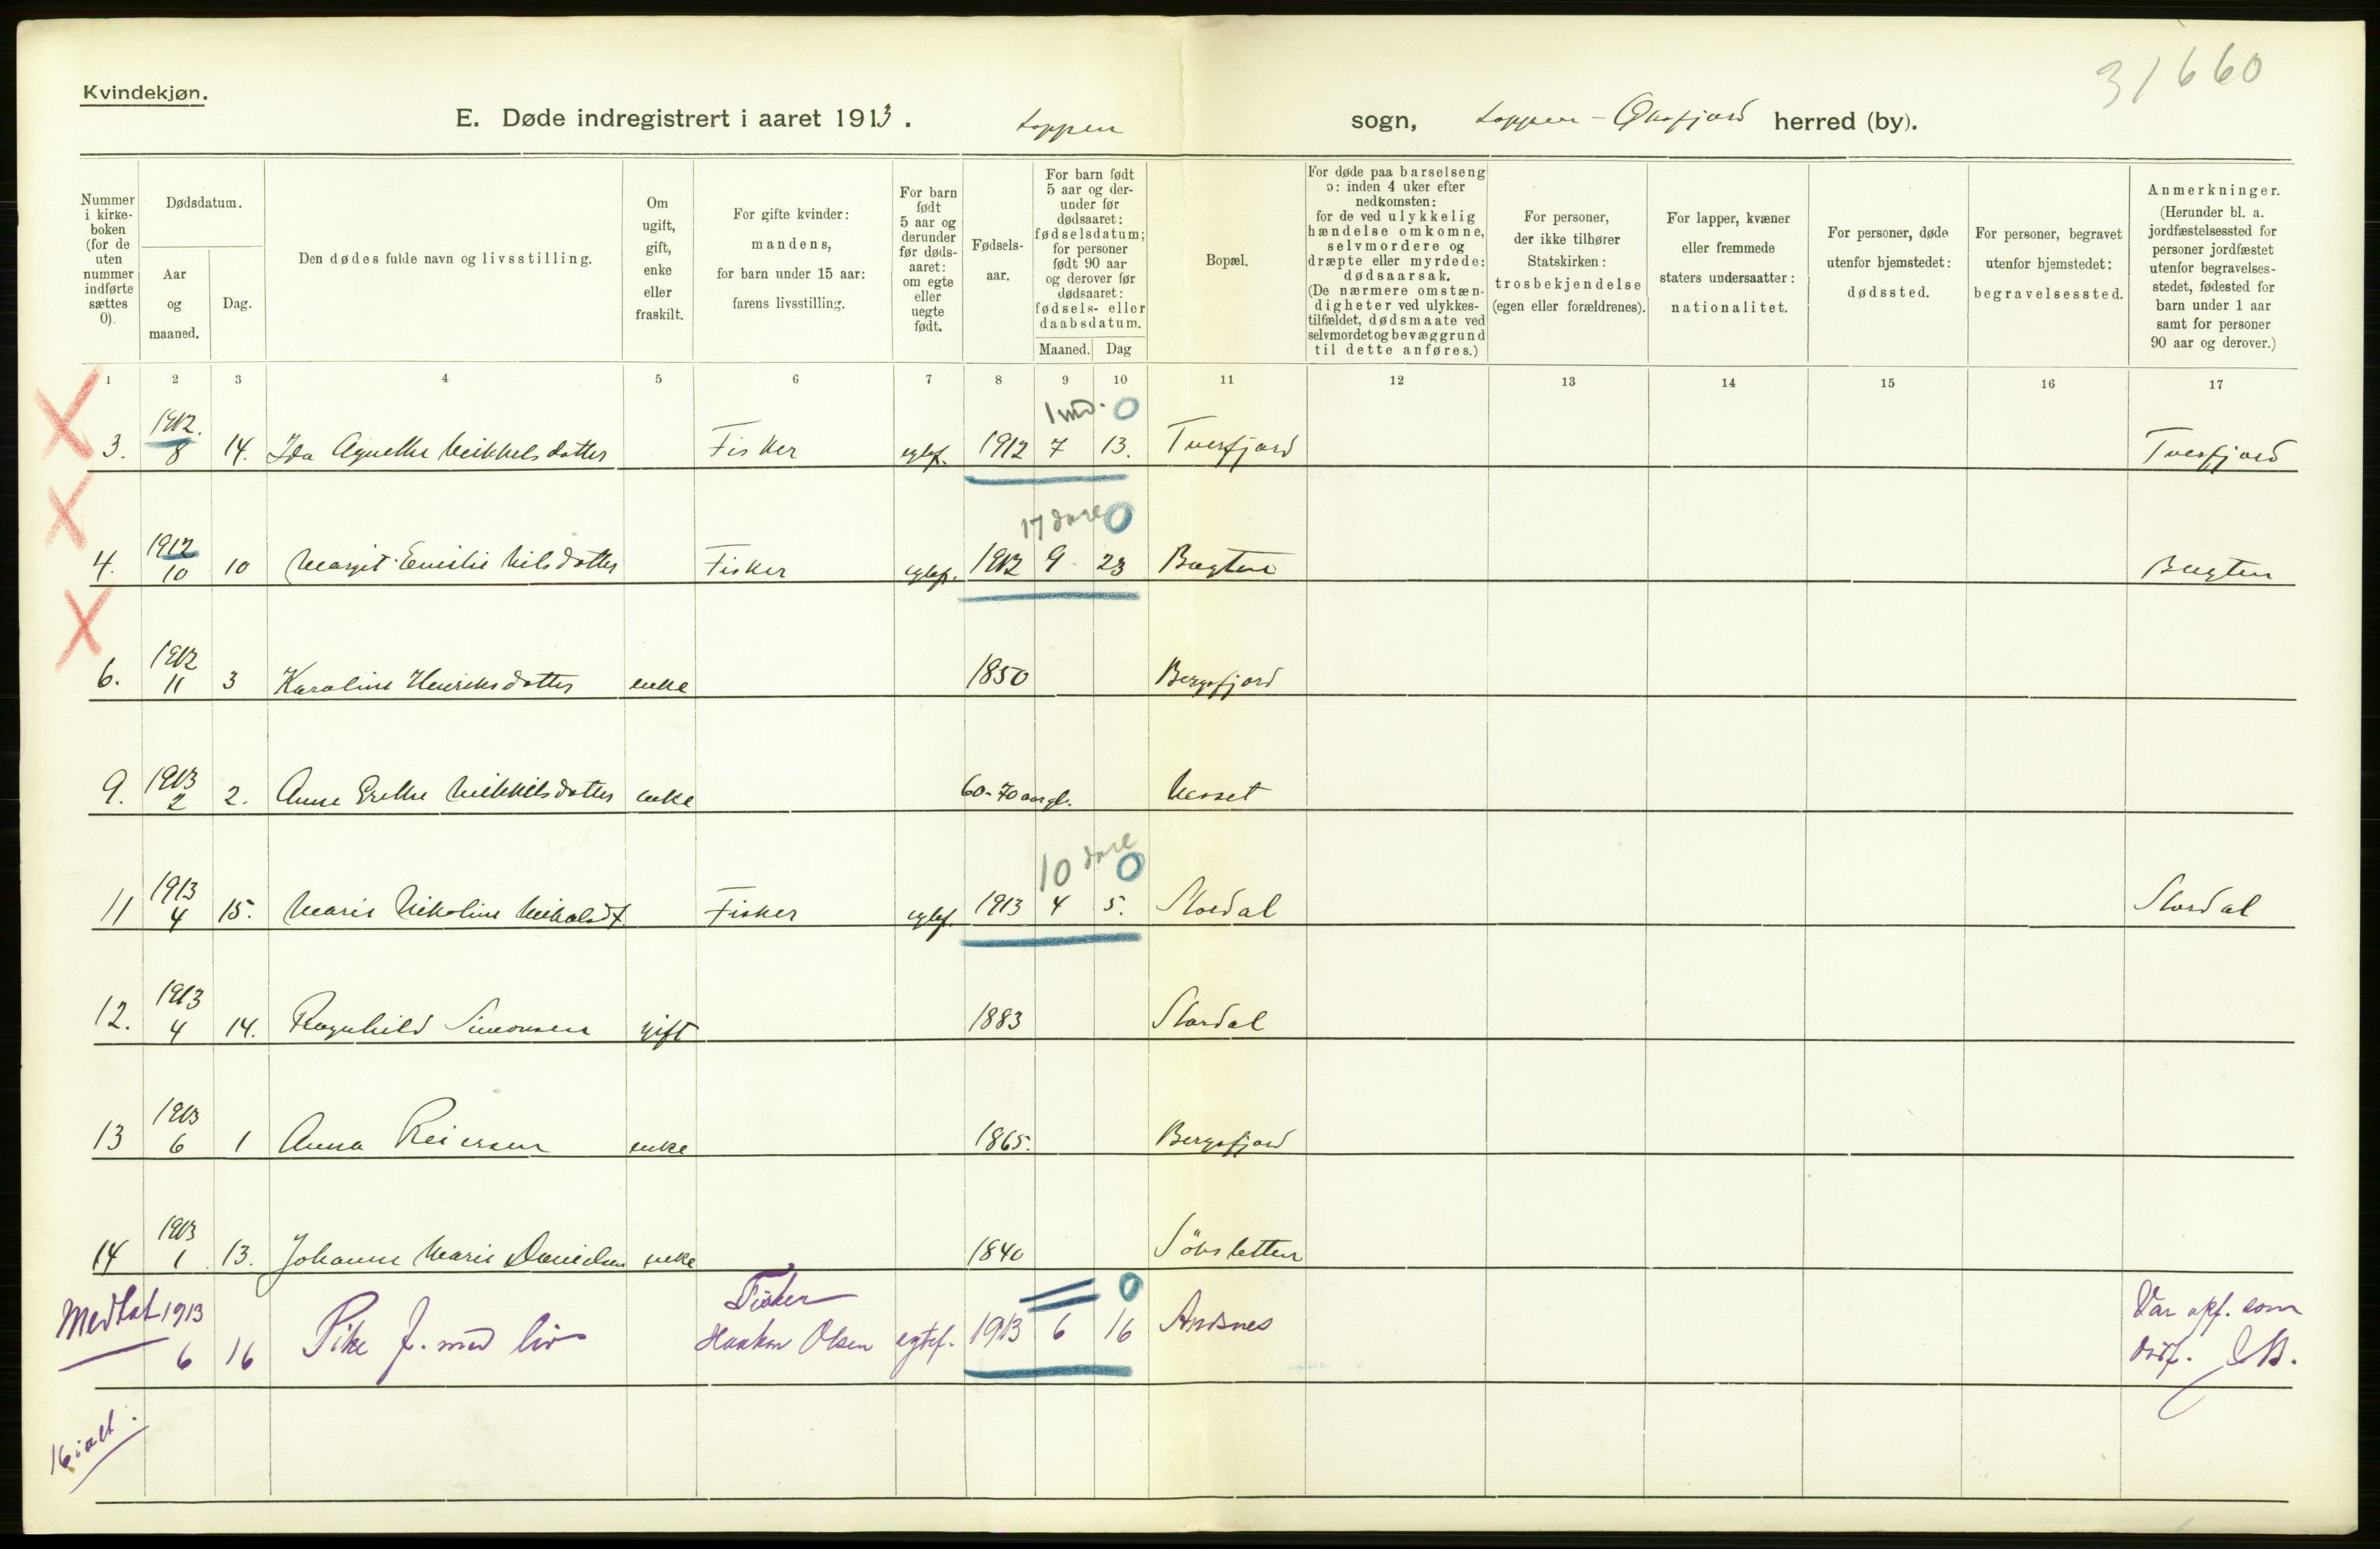 31660
Kvindekjøn.
E. Døde indregistrert i aaret 1913. Loppen sogn, Loppen - Øksfjord herred (by).
Nummer i kirke-boken (for de uten nummer indførte sættes 0).
Dødsdatum.
Aar og maaned.
Dag.
Den dødes fulde navn og livsstilling.
Om ugift, gift, enke eller fraskilt.
For gifte kvinder: mandens, for barn under 15 aar: farens livsstilling.
For barn født 5 aar og derunder før døds-aaret: om egte eller uegte født.
Fødsels-aar.
For barn født 5 aar og der-under før dødsaaret: fødselsdatum; for personer født 90 aar og derover før dødsaaret: fødsels- eller daabsdatum.
Maaned. Dag
Bopæl.
For døde paa barselseng ɔ: inden 4 uker efter nedkomsten: for de ved ulykkelig hændelse omkomne, selvmordere og dræpte eller myrdede: dødsaarsak. (De nærmere omstæn-digheter ved ulykkes-tilfældet, dødsmaate ved selvmordet og bevæggrund til dette anføres.)
For personer, der ikke tilhører Statskirken: trosbekjendelse (egen eller forældrenes).
For lapper, kvæner eller fremmede staters undersaatter: nationalitet.
For personer, døde utenfor hjemstedet: dødssted.
For personer, begravet utenfor hjemstedet: begravelsessted.
Anmerkninger. (Herunder bl. a. jordfæstelsessted for personer jordfæstet utenfor begravelses-stedet, fødested for barn under 1 aar samt for personer 90 aar og derover.)
1 2 3 4 5 6 7 8 9 10 11 12 13 14 15 16 17
1 md. 0
3. 1912. 8 14. Ida Agnethe Mikkelsdatter Fisker egtef. 1912 7 13. Tverfjord Tverfjord
17 dage 0
4. 1912 10 10 Margit Emilie Nilsdatter Fisker egtef. 1912 9 23 Bugten Bugten
6. 1912 11 3 Karoline Henriksdatter enke 1850 Bergsfjord
9. 1913 2 2. Anne Grethe Mikkelsdatter enke 60-70 aar gl. Nesset
10 dage 0
11 1913 4 15. Marie Nikoline Nikolsdt. Fisker egtef. 1913 4 5. Stordal Stordal
12. 1913 4 14. Ragnhild Simonsen gift 1883 Stordal
13 1913 6 1 Anna Reiersen enke 1865. Bergsfjord
14 1913 1 13. Johanne Marie Danielsen enke 1840
Medtat 1913 6 16 Pike f. med liv Fisker Haakon Olsen egtef. 1913 6 16 0 Andsnes Var opf. som dødf.
16 ialt.